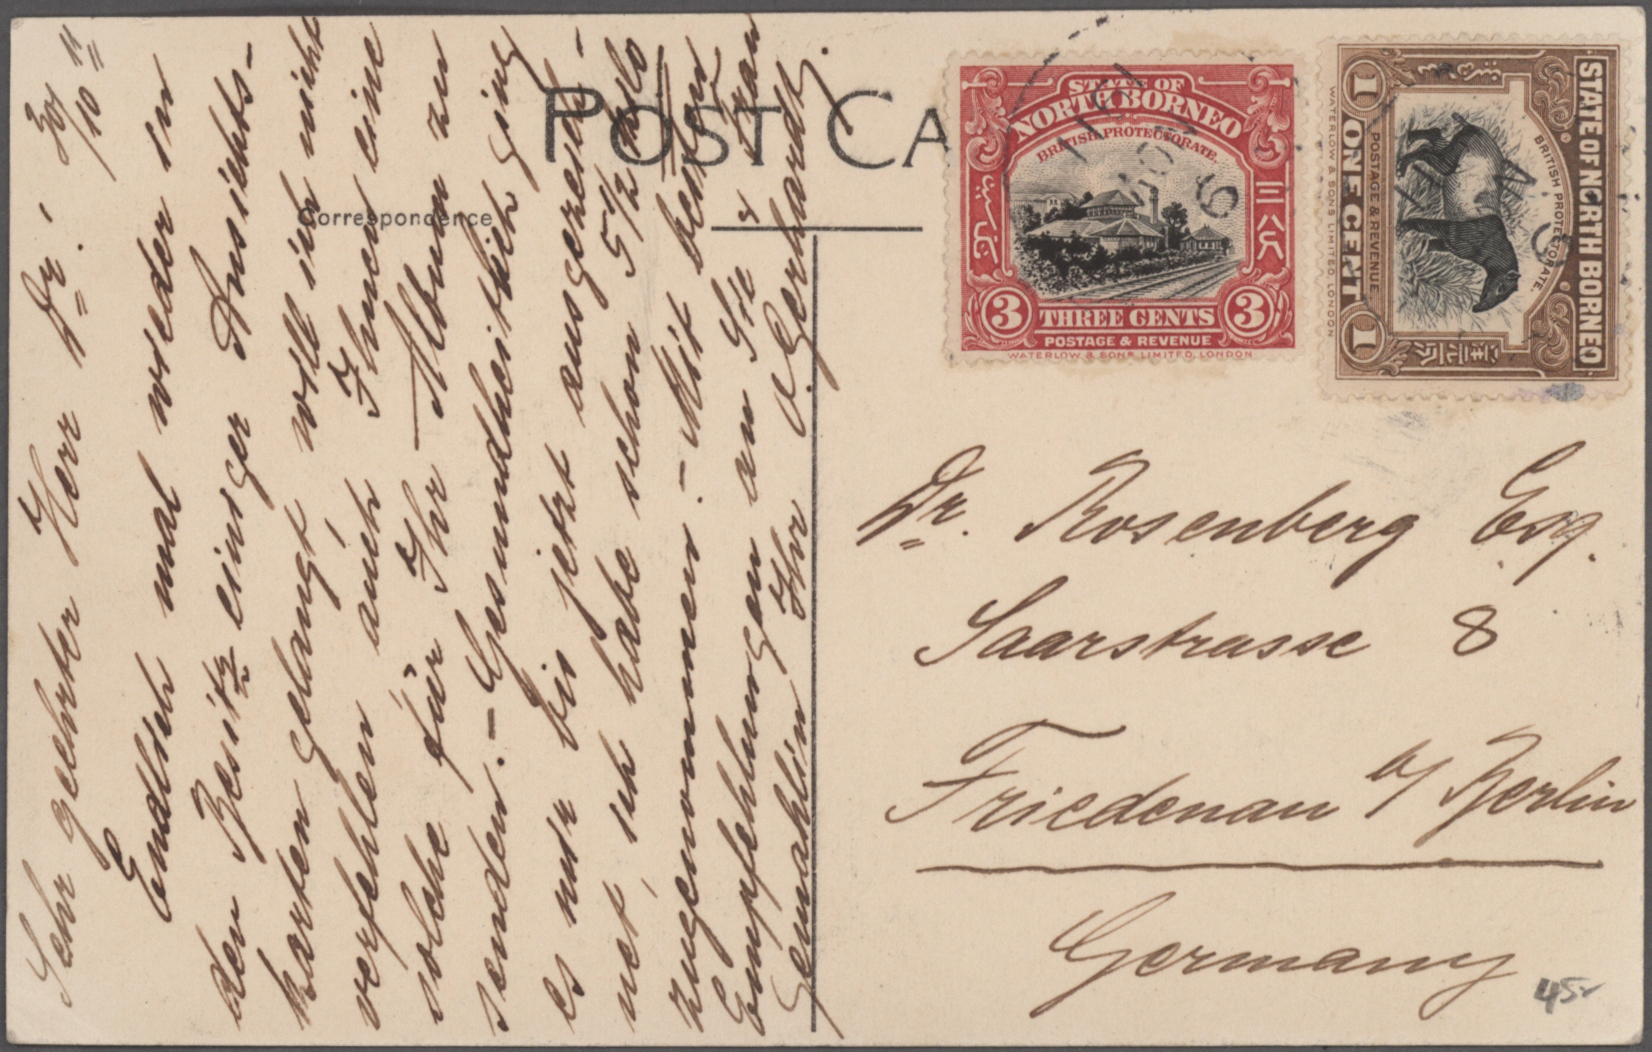 POST CA
Correspondence
30/10 11
Sehr geehrter Herr Dr.!
Endlich mal wieder in
den Besitz einiger Ansichts-
karten gelangt will ich nicht
verfehlen auch Ihnen eine
solche für Ihr Album zu
senden. – Gesundheitlich ging
es mir bis jetzt ausgezeich-
net, ich habe schon 5 1/2 Kilo
zugenommen. – Mit besten
Empfehlungen an Sie & Frau
Gemahlin Ihr O. Gerhardt.
STATE OF
NORTH BORNEO
BRITISH PROTECTORATE.
三八
3 THREE CENTS 3
POSTAGE & REVENUE
WATERLOW & SONS LIMITED, LONDON
STATE OF NORTH BORNEO
BRITISH PROTECTORATE.
POSTAGE & REVENUE
1 ONE CENT 1
WATERLOW & SONS LIMITED, LONDON
Dr. Rosenberg Esq.
Saarstrasse 8
Friedenau b/ Berlin
Germany
45